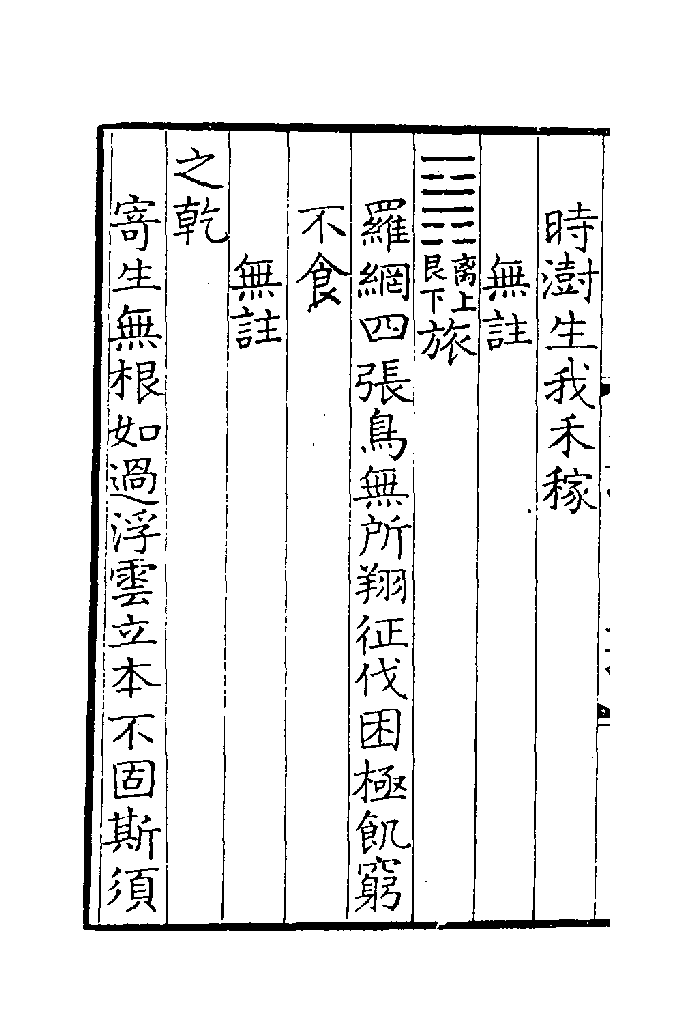 時澍生我禾稼
無註
離上艮下旅
羅網四張鳥無所翔征伐困極飢窮
不食
無註
之乾
寄生無根如過浮雲立本不固斯須